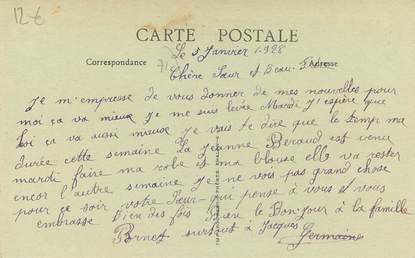 12 €
CARTE POSTALE
Correspondance
Adresse
Le 5 Janvier 1928
Chère Sœur et Beau-Frère
Je m'empresse de vous donner de mes nouvelles pour
moi ça va mieux Je me suis levée Mardi J'espère que
toi ça va aussi mieux Je vais te dire que le temp ma
durée cette semaine La Jeanne Beraud est venu
mardi faire ma robe et ma blouse elle va rester
encor l'autre semaine Je ne vois pas grand chose
pour ce soir votre Sœur qui pense à vous et vous
embrasse bien des fois Bien le Bonjour à la famille
Bornet surtout à Jacques
Germaine